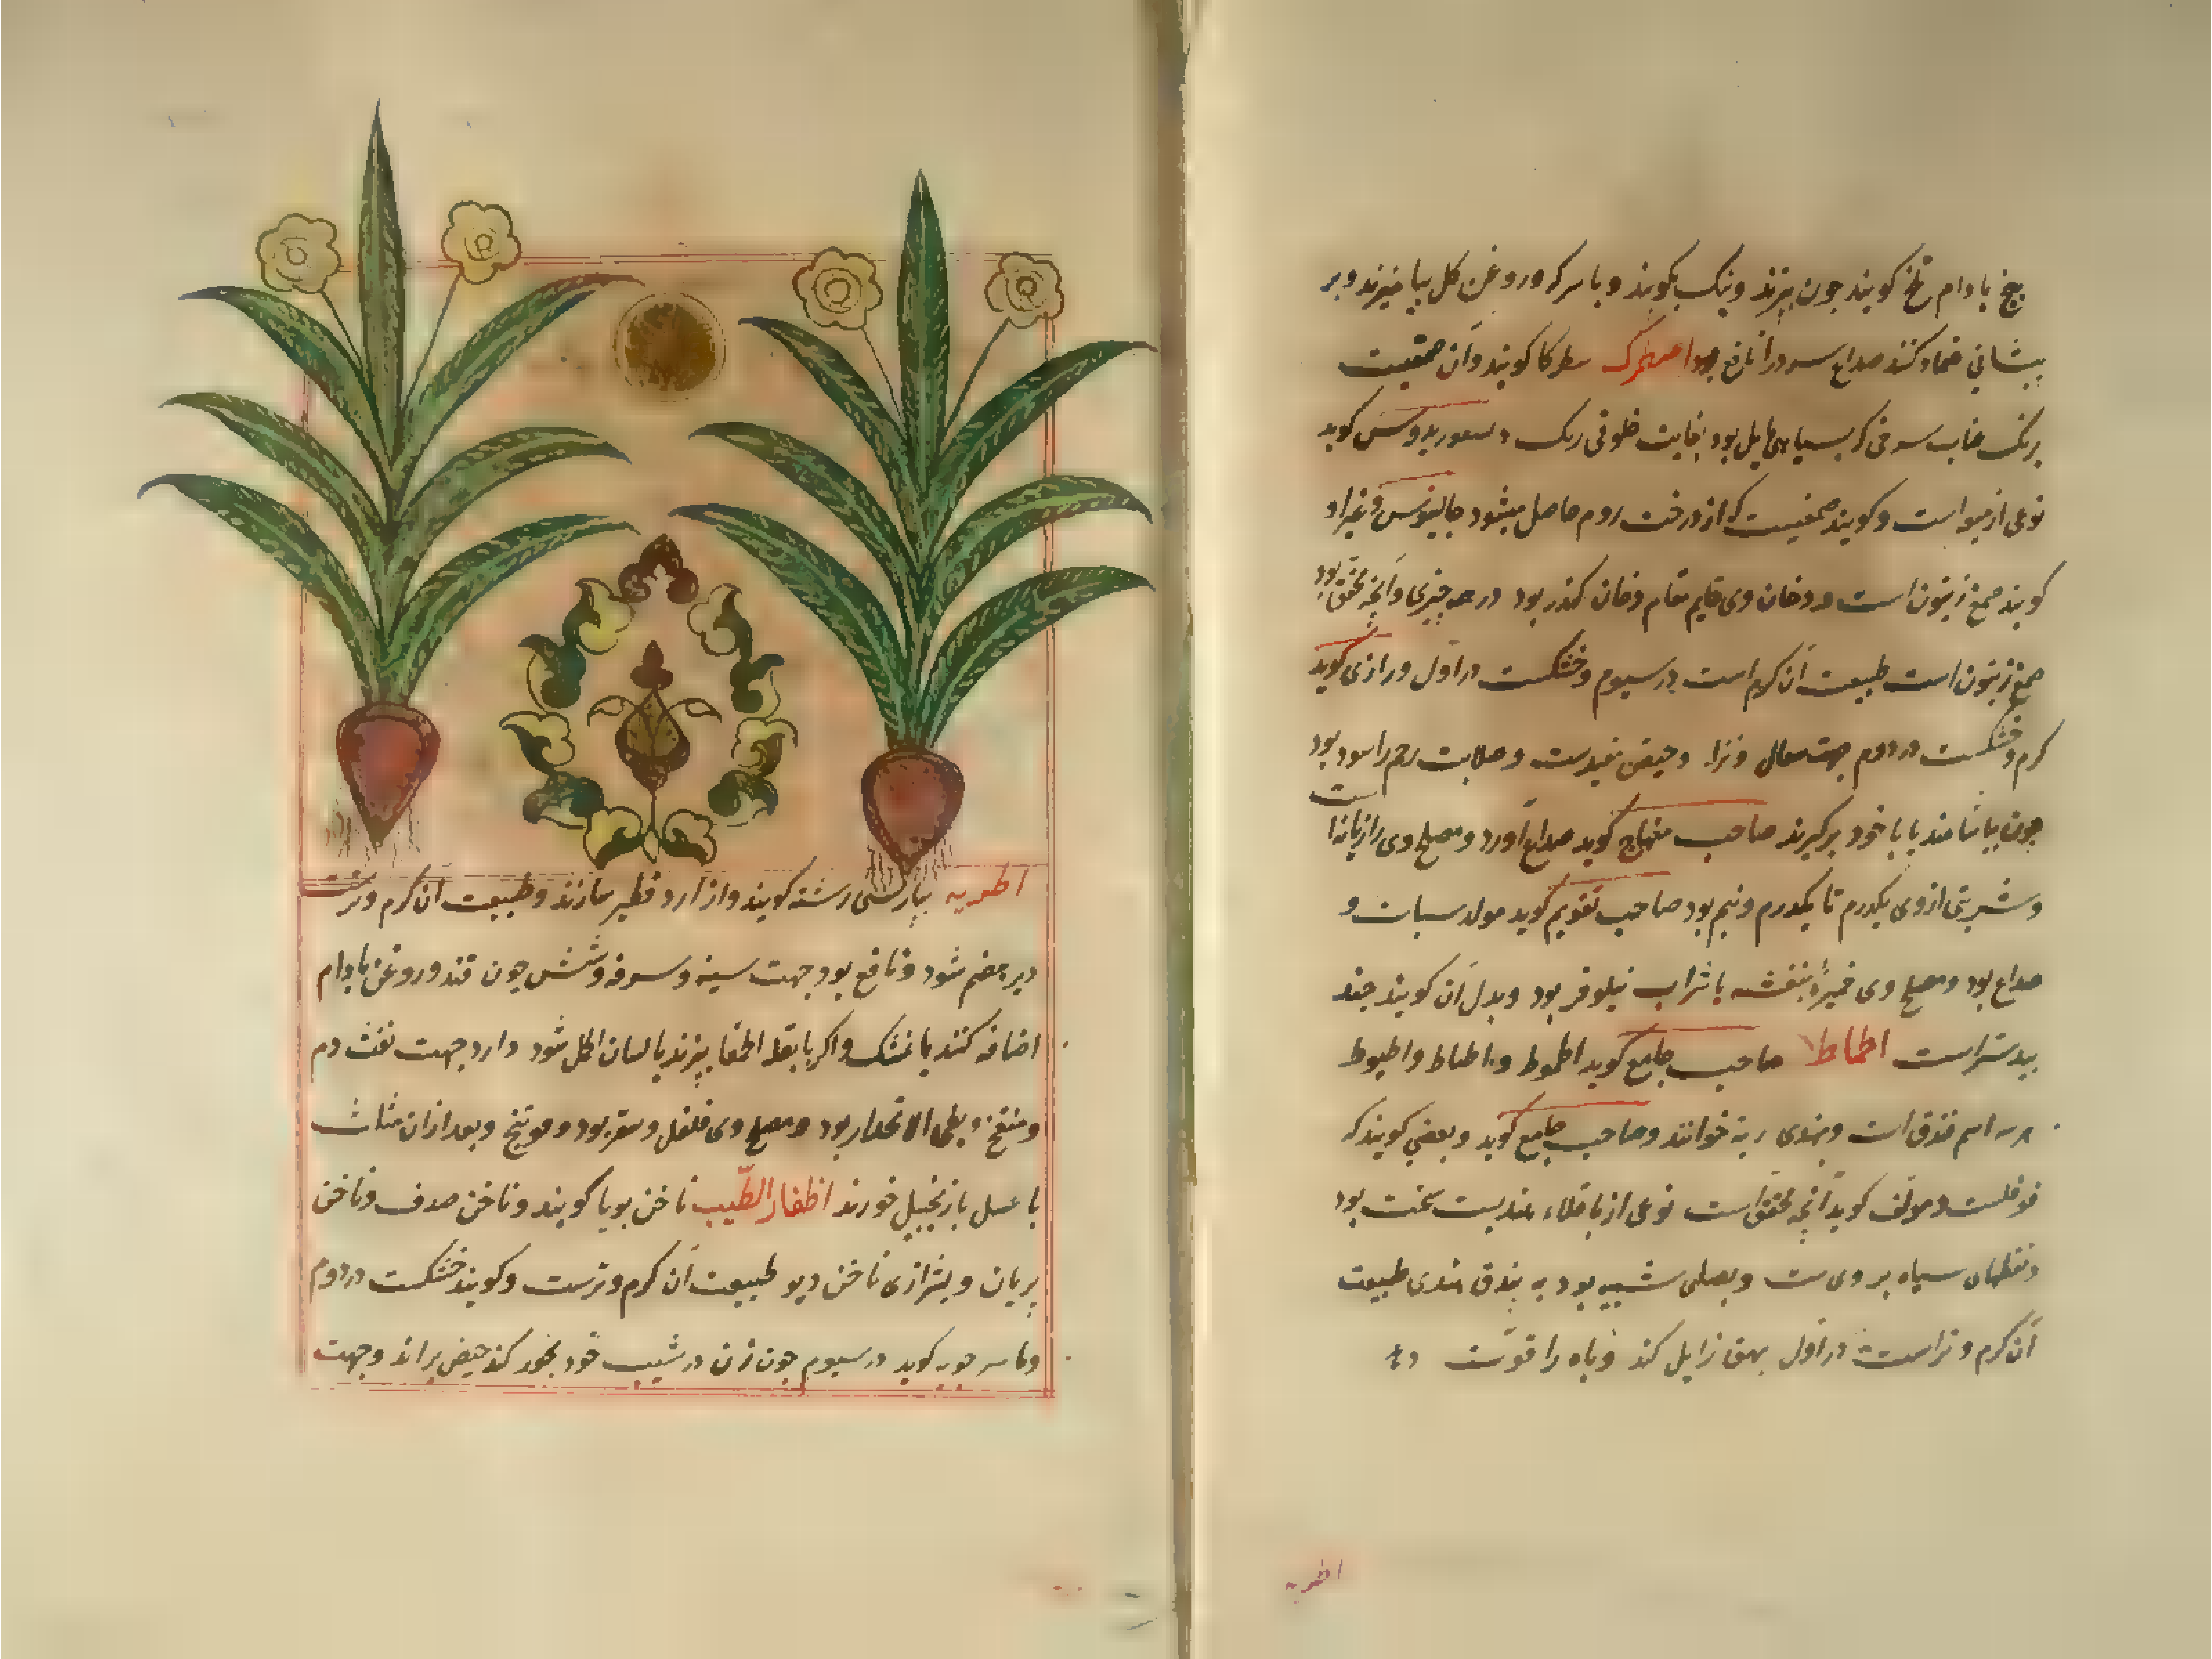 بیخ بادام تلخ کویند چون بپزند و نیک بکوبند و با سرکه و روغن کل بیامیزند و بر
پیشانی ضماد کنند صداع سرد را نافع بود اصطرک سطرکا کویند و آن صمغیست
برنک عناب سرخی که بسیاهی مایل بود بغایت خلوقی رنک و کوید
نوعی از میعه است و کویند صمغیست که از درخت روم حاصل میشود جالینوس و غیر او
کویند صمغ زیتون است و دخان وی قایم مقام دخان کندر بود در همه چیزی و آنچه محقق بود
صمغ زیتون است طبیعت آن کرم است در سیوم و خشکست در اول و رازی کوید
کرم و خشکست در دوم جهت سعال و نزله و حیض مفیدست و صلابت رحم را سود بود
چون بیاشامند یا با خود برکیرند صاحب منهاج کوید صداع آورد و مصلح وی رازیانه است
و شربتی از وی یکدرم تا یکدرم و نیم بود صاحب تقویم کوید مولد سبات و
صداع بود و مصلح وی خمیرۀ بنفشه با شراب نیلوفر بود و بدل آن کویند جند
بیدستر است اطماط صاحب جامع کوید اطموط و اطماط و اطیوط
هر سه اسم فندق است و بهندی رته خوانند و صاحب جامع کوید و بعضی کویند که
فوفلست و مولف کوید آنچه محقق است نوعی از باقلاء هندیست سخت بود
و نقطهای سیاه بر وی ست و بصلی شبیه بود به بندق هندی طبیعت
آن کرم و تر است در اول بهق زایل کند و باه را قوت دهد
اطریه
اطریه بپارسی رشته کویند و از آرد فطیر سازند و طبیعت آن کرم و ترست
دیر هضم شود و نافع بود جهت سینه و سرفه و شش چون قند و روغن بادام
اضافه کنند یا نمشک و اکر با بقلة الحمقا بپزند یا لسان الحمل شود دارد جهت نفث دم
و منفخ و بطی الانحدار بود و مصلح وی فلفل و سعتر بود و فوتنج و بعد از آن مثلث
با عسل یا زنجبیل خورند اظفار الطیب ناخن بویا کویند و ناخن صدف و ناخن
پریان و بشیرازی ناخن دیو طبیعت آن کرم و ترست و کویند خشکست در دوم
و ماسرجویه کوید در سیوم چون زن در شیب خود بخور کند حیض براند و جهت